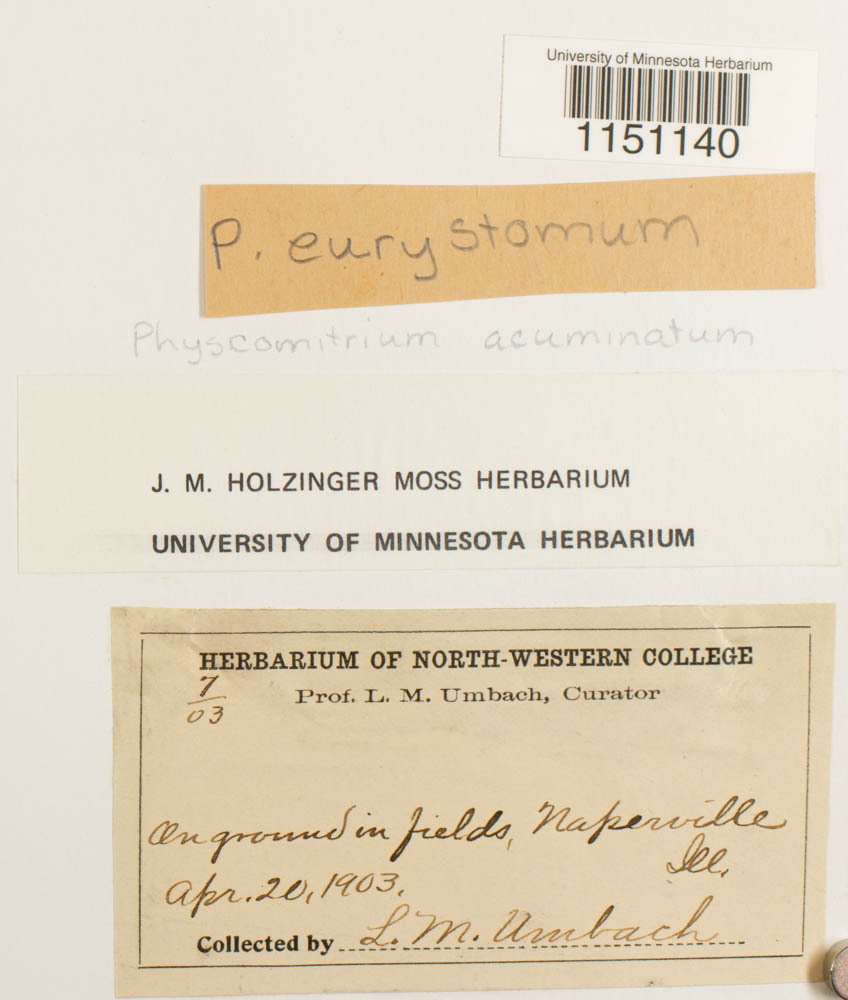 University of Minnesota Herbarium
1151140
P. eurystomum
Physcomitrium acuminatum
J. M. HOLZINGER MOSS HERBARIUM
UNIVERSITY OF MINNESOTA HERBARIUM
HERBARIUM OF NORTH-WESTERN COLLEGE
7/03
Prof. L. M. Umbach, Curator
On ground in fields, Naperville
Ill.
Apr. 20, 1903.
Collected by L. M. Umbach